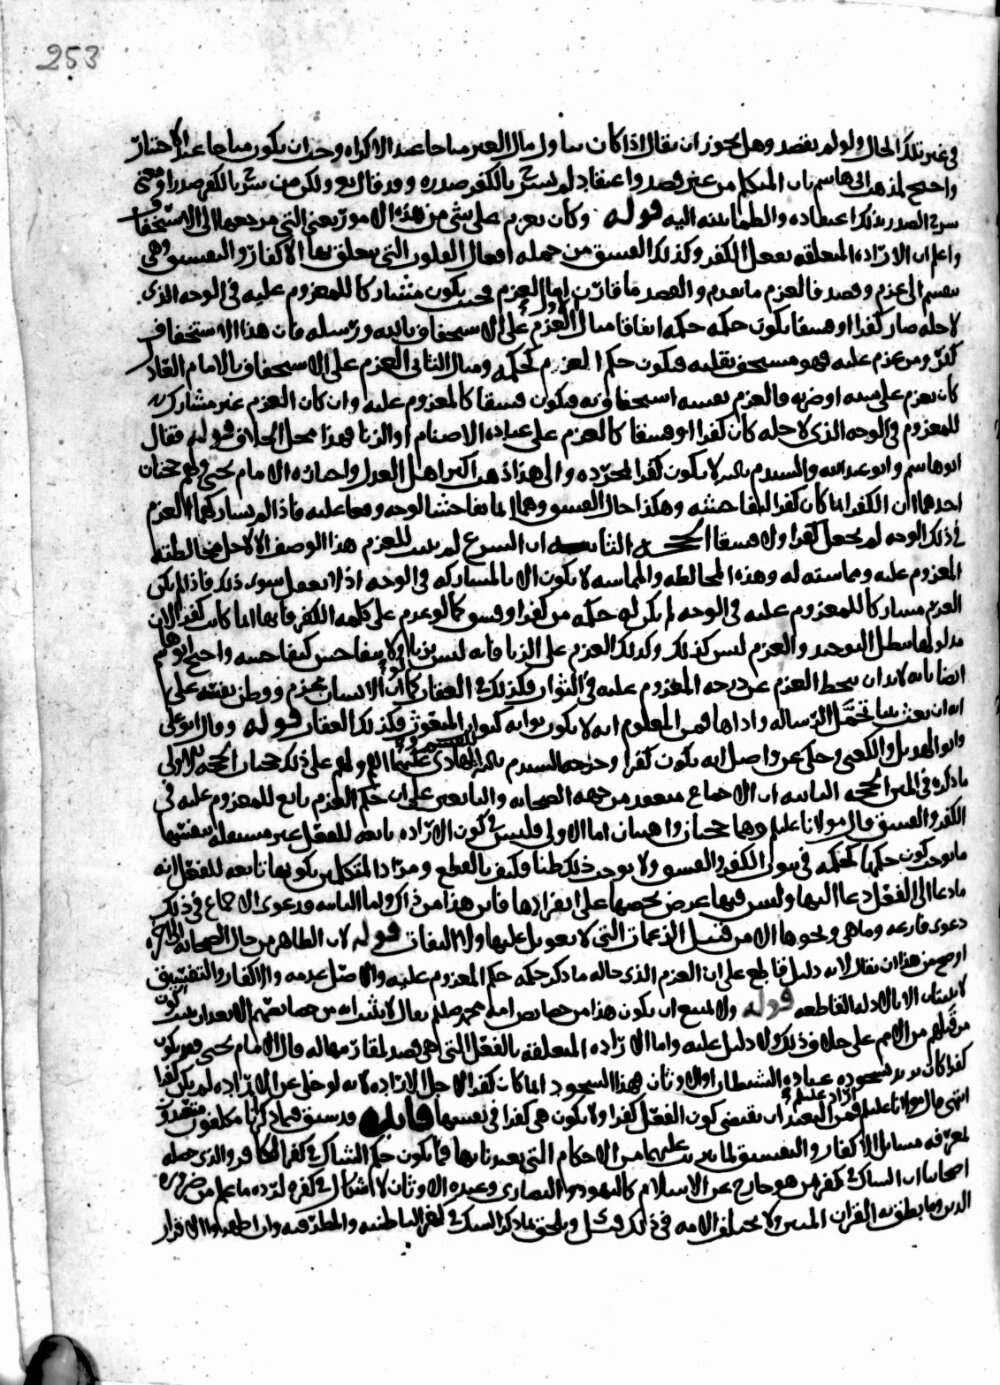 253
في غير تلك الحال ولو لم يقصد وهل يجوز ان يقال اذا كان تناول مال الغير مباحا عند الاكراه وجب ان يكون مباحا عند الاختيار
واحتج لمذهب ابي هاشم بان المتكلم من غير قصد واعتقاد لم يشرح بالكفر صدره وقد قال تع ولكن من شرح بالكفر صدرا ومعنى
شرح الصدر بذلك اعتقاده والطمأنينه اليه قوله وكان يعزم على شي من هذه الامور يعني التي مرجعها الى الاستخفاف
واعلم ان الاراده المتعلقه بفعل الكفر وكذلك الفسق من جمله افعال القلوب التي يتعلق بها الاكفار والتفسيق وهي
تنقسم الى عزم وقصد فالعزم ما تقدم والقصد ما قارن اما العزم فحيث يكون مشاركا للمعزوم عليه في الوجه الذي
لاجله صار كفرا او فسقا يكون حكمه حكمه اتفاقا مثال الاول العزم على الاستخفاف بالله ورسله فان هذا الاستخفاف
كفر ومن عزم عليه فهو مستخف بقلبه فيكون حكم العزم كحكمه ومثال الثاني العزم على الاستخفاف بالامام العادل
كان يعزم على سبه او ضربه فالعزم نفسه استخفاف به فيكون فسقا كالمعزوم عليه وان كان العزم غير مشارك
للمعزوم في الوجه الذي لاجله كان كفرا او فسقا كالعزم على عباده الاصنام او الزنا فهذا محل الخلاف قوله فقال
ابو هاشم وابو عبدالله والسيد م بالله لا يكون كفرا لمجرده والى هذا ذهب اكثر اهل العدل واختاره الامام يحيى ولهم حجتان
احدهما ان الكفر انما كان كفرا لتفاحشه وهكذا حال الفسق وهما انما تفاحشا لوجه وقعا عليه فاذا لم يشاركهما العزم
في ذلك الوجه لم يجعل كفرا ولا فسقا الحجه الثانيه ان الشرع لم يثبت للعزم هذا الوصف الا لاجل مخالطته
المعزوم عليه ومماسته له وهذه المخالطه والمماسه لا يكون الا بالمشاركه في الوجه اذ لا يعقل سوى ذلك فاذا لم يكن
العزم مشاركا للمعزوم عليه في الوجه لم يكن له حكمه من كفر او فسق كما لو عزم على كلمه الكفر فانها انما كانت كفرا لان
مدلولها يبطل التوحيد والعزم ليس كذلك وكذلك العزم على الزنا فانه ليس بزنا ولا يتفاحش كتفاحشه واحتج ابو هاشم
ايضا بانه لا بد ان ينحط العزم عن درجه المعزوم عليه في الثواب فكذلك في العقاب كما ان الانسان لو عزم ووطن نفسه على
انه ان بعث نبيا تحمل الرساله واداها فمن المعلوم انه لا يكون ثوابه كثواب المبعوث فكذلك العقاب قوله وقال ابو علي
وابو الهذيل والكعبي وحكي عن واصل انه يكون كفرا وخرجه السيد م بالله للهادي عليهما السلم ولهم على ذلك حجتان الحجه الاولى
ما ذكره في المتن الحجه الثانيه ان الاجماع منعقد من جهه الصحابه والتابعين على ان حكم العزم تابع للمعزوم عليه في
الكفر والفسق قال مولانا عليلم وهما حجتان واهيتان اما الاولى فليس في كون الاراده تابعه للفعل غير مستقله بنفسها
ما يوجب كون حكمها كحكمه في ثبوت الكفر والفسق ولا يوجب ذلك ظنا فكيف بالقطع ومراد المتكلمين بكونها تابعه للفعل انه
ما دعا الى الفعل دعا اليها وليس فيها غرض يخصها على انفرادها فاين هذا من ذاك واما الثانيه فدعوى الاجماع في ذلك
دعوى فارغه وما هي ونحوها الا من قبيل الزعمات التي لا تعويل عليها ولا التفات قوله لان الظاهر من حال الصحابه
اوضح من هذا ان يقال لانه دليل قاطع على ان العزم الذي حاله ما ذكر حكمه حكم المعزوم عليه والاصل عدمه والاكفار والتفسيق
لا يثبتان الا بالادله القاطعه قوله ولا يمتنع ان يكون هذا من خصايص امه محمد صلعم يقال لا يثبت انه من خصايصهم الا بعد ان يثبت كون
من قبلهم من الامم على خلاف ذلك ولا دليل عليه واما الاراده المتعلقه بالفعل التي هي قصد لمقارنتها له قال الامام يحيى فهو يكون
كفرا كان يريد بسجوده عباده الشيطان او الاوثان فهذا السجود انما كان كفرا لاجل الاراده لانه لو خلي عن الاراده لم يكن كفرا
انتهى قال مولانا عليلم فمن البعيد ان يقتضي كون الفعل كفرا ولا يكون هي كفرا في نفسها فايده قد سبق فيما ذكرنا مكلفون متعبدون
بمعرفه مسايل الاكفار والتفسيق لما يترتب عليهما من الاحكام التي تعبدنا بها فما يكون حكم الشاك في كفر الكافر والذي حصله
اصحابنا ان الشاك في كفر من هو خارج عن الاسلام كاليهود والنصارى وعبده الاوثان لا اشكال في كفره لرده ما علم من ضروره
الدين وما نطق به القران المبين ولا يختلف الامه في ذلك قيل ويلحق بما ذكر الشك في كفر الباطنيه والمطرفيه وان اظهروا الاقرار